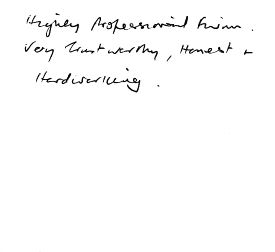 Highly Professional Firm.
Very Trustworthy, Honest +
Hardworking.